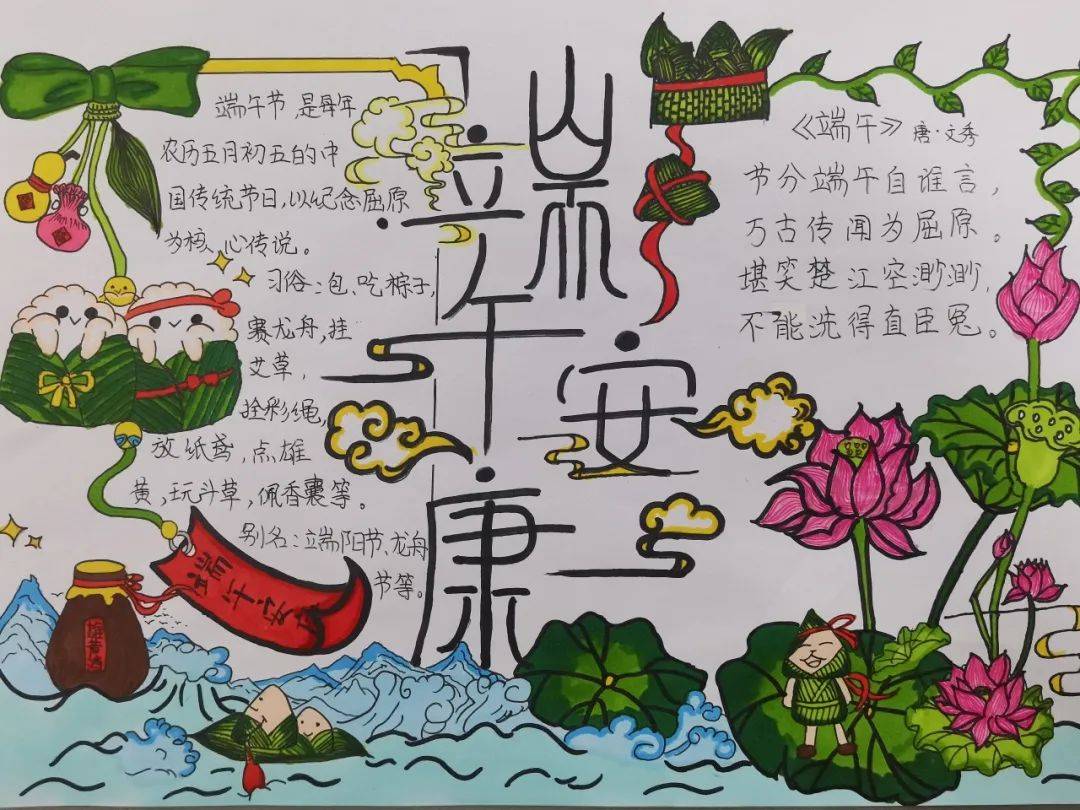 端午安康
端午节，是每年
农历五月初五的中
国传统节日，以纪念屈原
为核心传说。
习俗：包、吃粽子，
赛龙舟，挂
艾草，
拴彩绳，
放纸鸢，点雄
黄，玩斗草，佩香囊等。
别名：端阳节、龙舟
节等。
《端午》 唐·文秀
节分端午自谁言，
万古传闻为屈原。
堪笑楚江空渺渺，
不能洗得直臣冤。
端午安康
雄黄酒